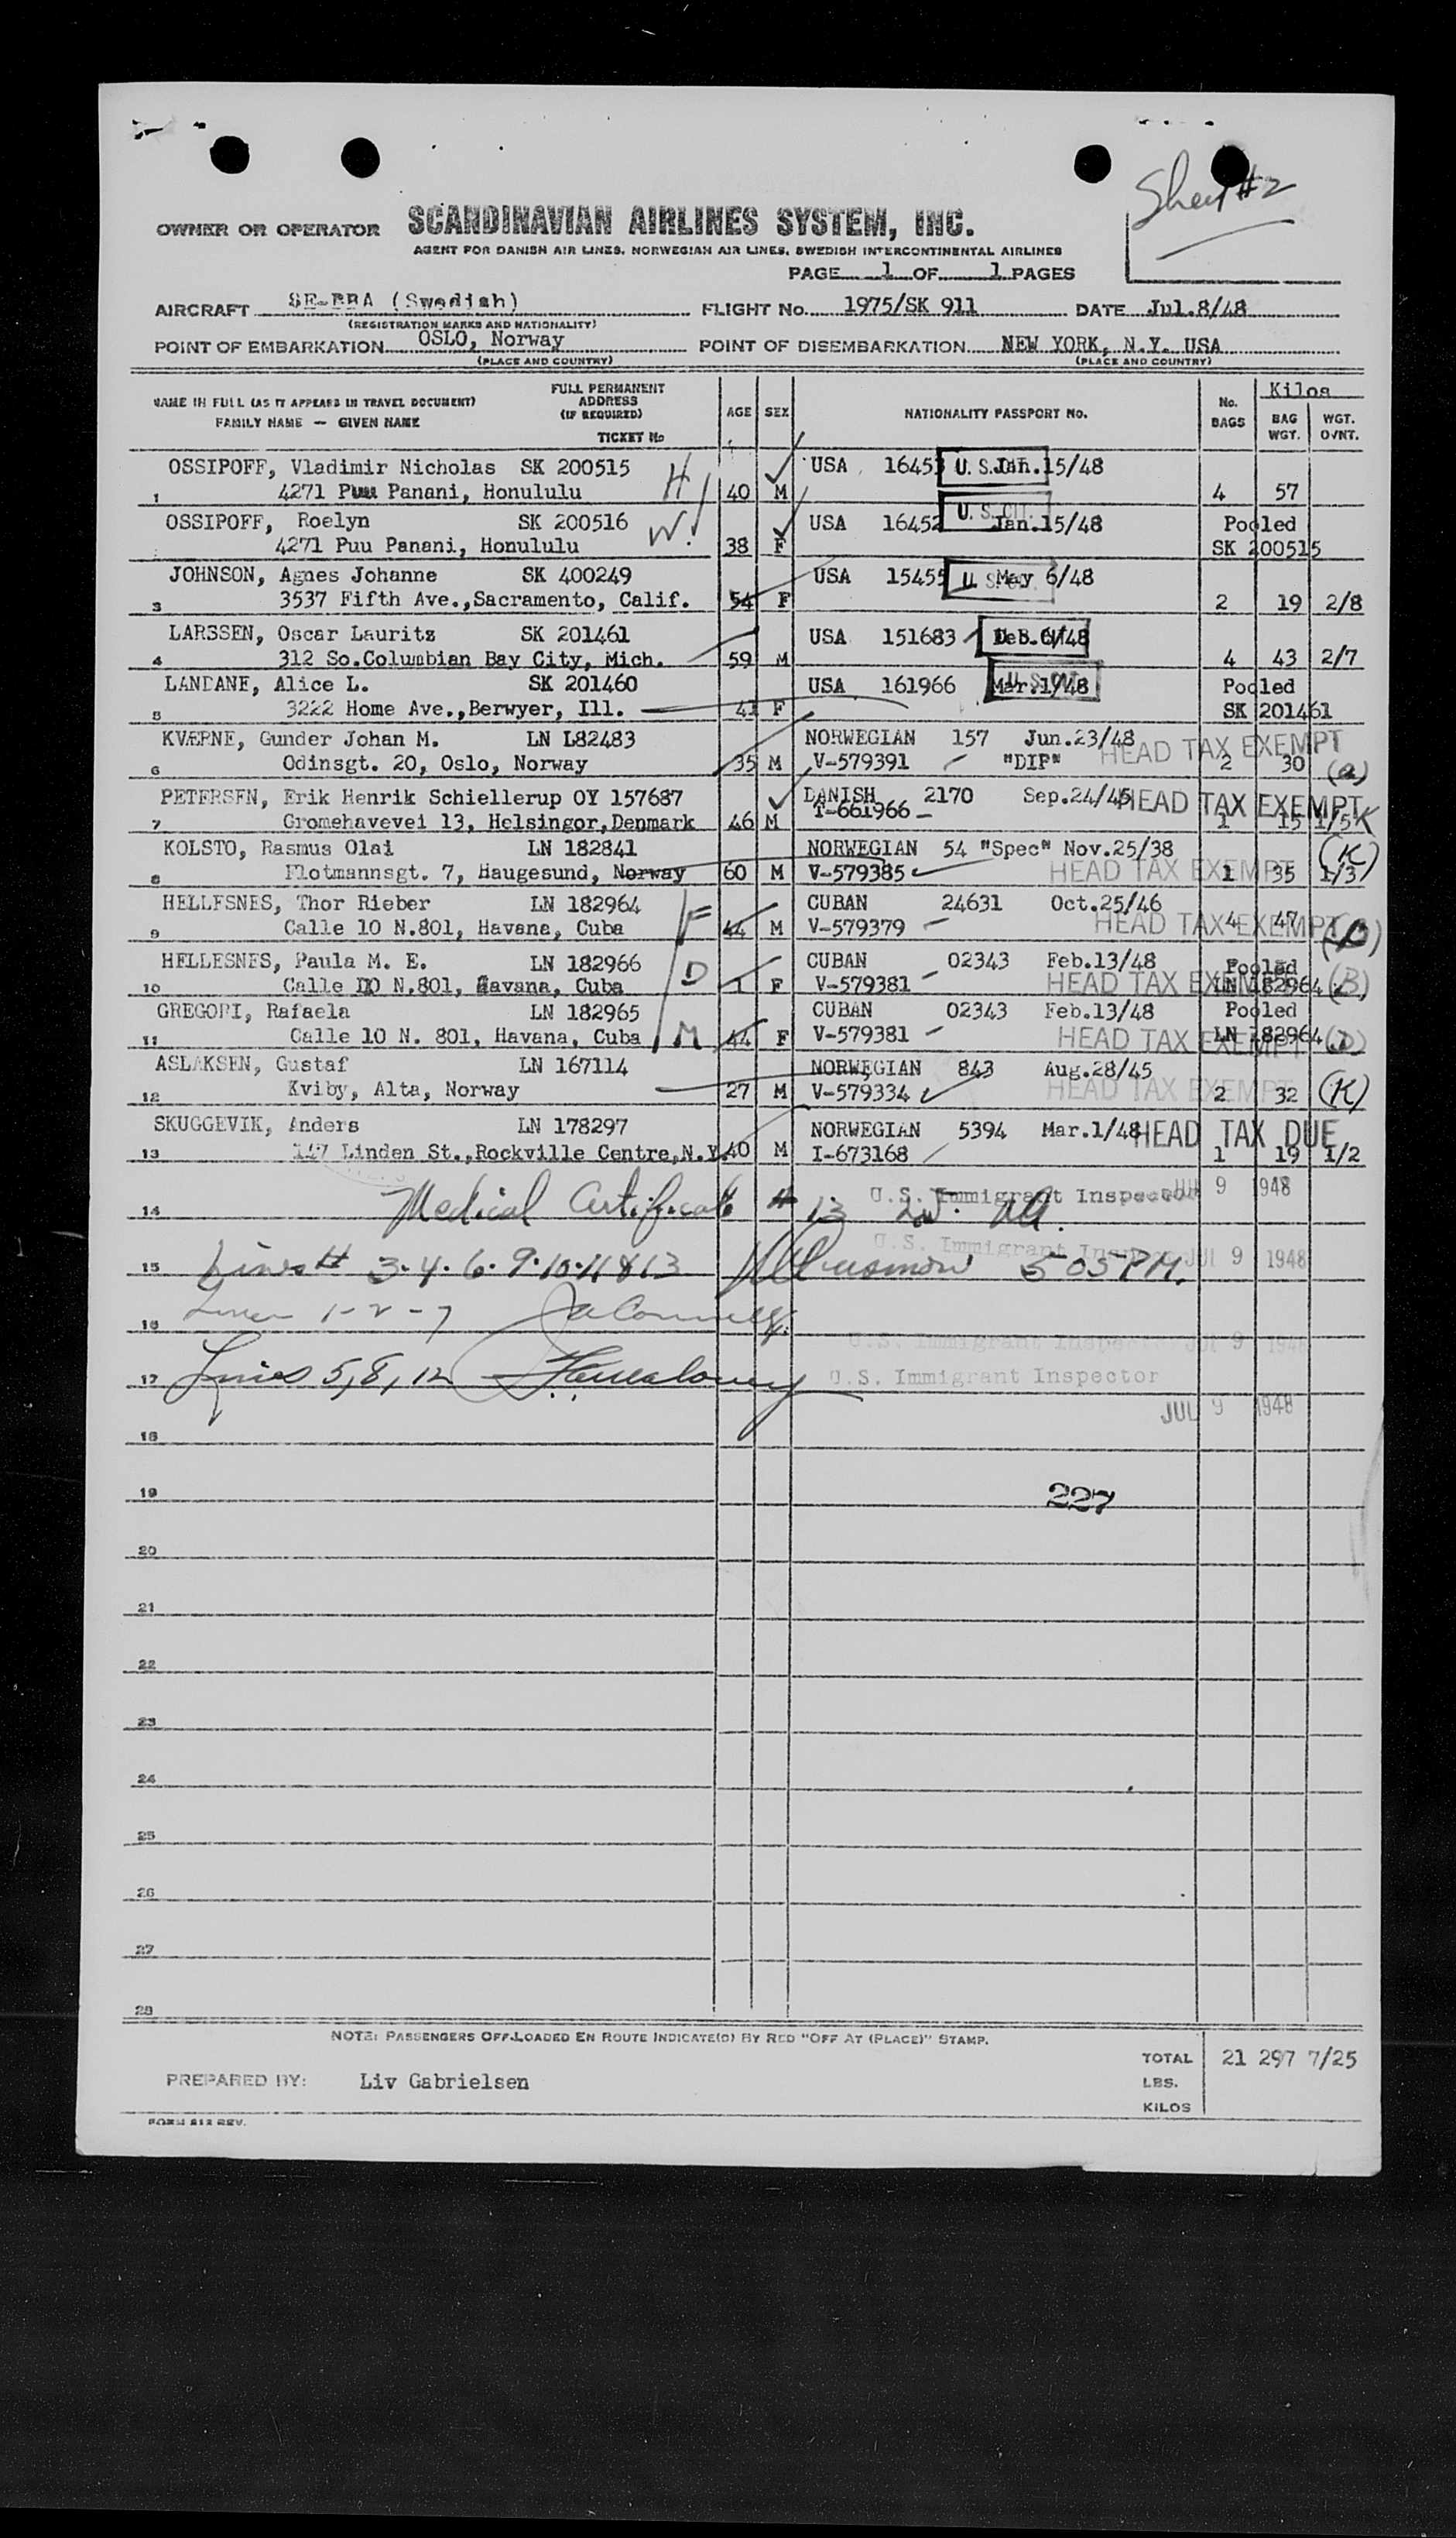 Sheet #2
OWNER OR OPERATOR SCANDINAVIAN AIRLINES SYSTEM, INC.
AGENT FOR DANISH AIR LINES, NORWEGIAN AIR LINES, SWEDISH INTERCONTINENTAL AIRLINES
PAGE 1 OF 1 PAGES
AIRCRAFT SE-BBA (Swedish) FLIGHT No. 1975/SK 911 DATE Jul.8/48
(REGISTRATION MARKS AND NATIONALITY)
POINT OF EMBARKATION OSLO, Norway POINT OF DISEMBARKATION NEW YORK, N.Y. USA
(PLACE AND COUNTRY) (PLACE AND COUNTRY)
NAME IN FULL (AS IT APPEARS IN TRAVEL DOCUMENT) FULL PERMANENT ADDRESS (IF REQUIRED) AGE SEX NATIONALITY PASSPORT No. No. BAGS Kilos
FAMILY NAME — GIVEN NAME TICKET No BAG WGT. WGT. O/NT.
OSSIPOFF, Vladimir Nicholas SK 200515 USA 16453 U.S. Jan.15/48
1 4271 Puu Panani, Honululu H 40 M 4 57
OSSIPOFF, Roelyn SK 200516 USA 16452 U.S.CIT. Jan.15/48 Pooled
4271 Puu Panani, Honululu W. 38 F SK 200515
JOHNSON, Agnes Johanne SK 400249 USA 15455 U.S. May 6/48
3 3537 Fifth Ave.,Sacramento, Calif. 54 F 2 19 2/8
LARSSEN, Oscar Lauritz SK 201461 USA 151683
4 312 So.Columbian Bay City, Mich. 59 M 4 43 2/7
LANDANE, Alice L. SK 201460 USA 161966 Mar.1/48 Pooled
5 3222 Home Ave.,Berwyer, Ill. 41 F SK 201461
KVÆRNE, Gunder Johan M. LN L82483 NORWEGIAN 157 Jun.23/48 HEAD TAX EXEMPT
6 Odinsgt. 20, Oslo, Norway 35 M V-579391 "DIP" 2 30 (a)
PETERSEN, Erik Henrik Schiellerup OY 157687 DANISH 2170 Sep.24/45 HEAD TAX EXEMPT
7 Gromehavevei 13, Helsingor,Denmark 46 M T-661966 1 15 1/5 K
KOLSTO, Rasmus Olai LN 182841 NORWEGIAN 54 "Spec" Nov.25/38 (K)
8 Flotmannsgt. 7, Haugesund, Norway 60 M V-579385 HEAD TAX EXEMPT 1 35 1/3
HELLESNES, Thor Rieber LN 182964 F CUBAN 24631 Oct.25/46
9 Calle 10 N.801, Havana, Cuba 44 M V-579379 HEAD TAX EXEMPT 4 47
HELLESNES, Paula M. E. LN 182966 D CUBAN 02343 Feb.13/48 Pooled
10 Calle 10 N.801, Havana, Cuba 1 F V-579381 HEAD TAX EXEMPT LN 182964 (B)
GREGORI, Rafaela LN 182965 CUBAN 02343 Feb.13/48 Pooled
11 Calle 10 N. 801, Havana, Cuba M 44 F V-579381 HEAD TAX EXEMPT LN 182964
ASLAKSEN, Gustaf LN 167114 NORWEGIAN 843 Aug.28/45
12 Kviby, Alta, Norway 27 M V-579334 HEAD TAX EXEMPT 2 32 (K)
SKUGGEVIK, Anders LN 178297 NORWEGIAN 5394 Mar.1/48 HEAD TAX DUE
13 147 Linden St.,Rockville Centre,N.Y. 40 M I-673168 1 19 1/2
14 Medical Certificate # 13 U.S. Immigrant Inspector JUL 9 1948
15 Lines # 3.4.6.9.10.11 & 13 505 PM. U.S. Immigrant Inspector JUL 9 1948
16 Lines 1-2-7 U.S. Immigrant Inspector JUL 9 1948
17 Lines 5, 8, 12 U.S. Immigrant Inspector
JUL 9 1948
18
19 227
20
21
22
23
24
25
26
27
28
NOTE: PASSENGERS OFF-LOADED EN ROUTE INDICATE(D) BY RED "OFF AT (PLACE)" STAMP.
TOTAL 21 297 7/25
PREPARED BY: Liv Gabrielsen LBS.
KILOS
FORM 812 REV.